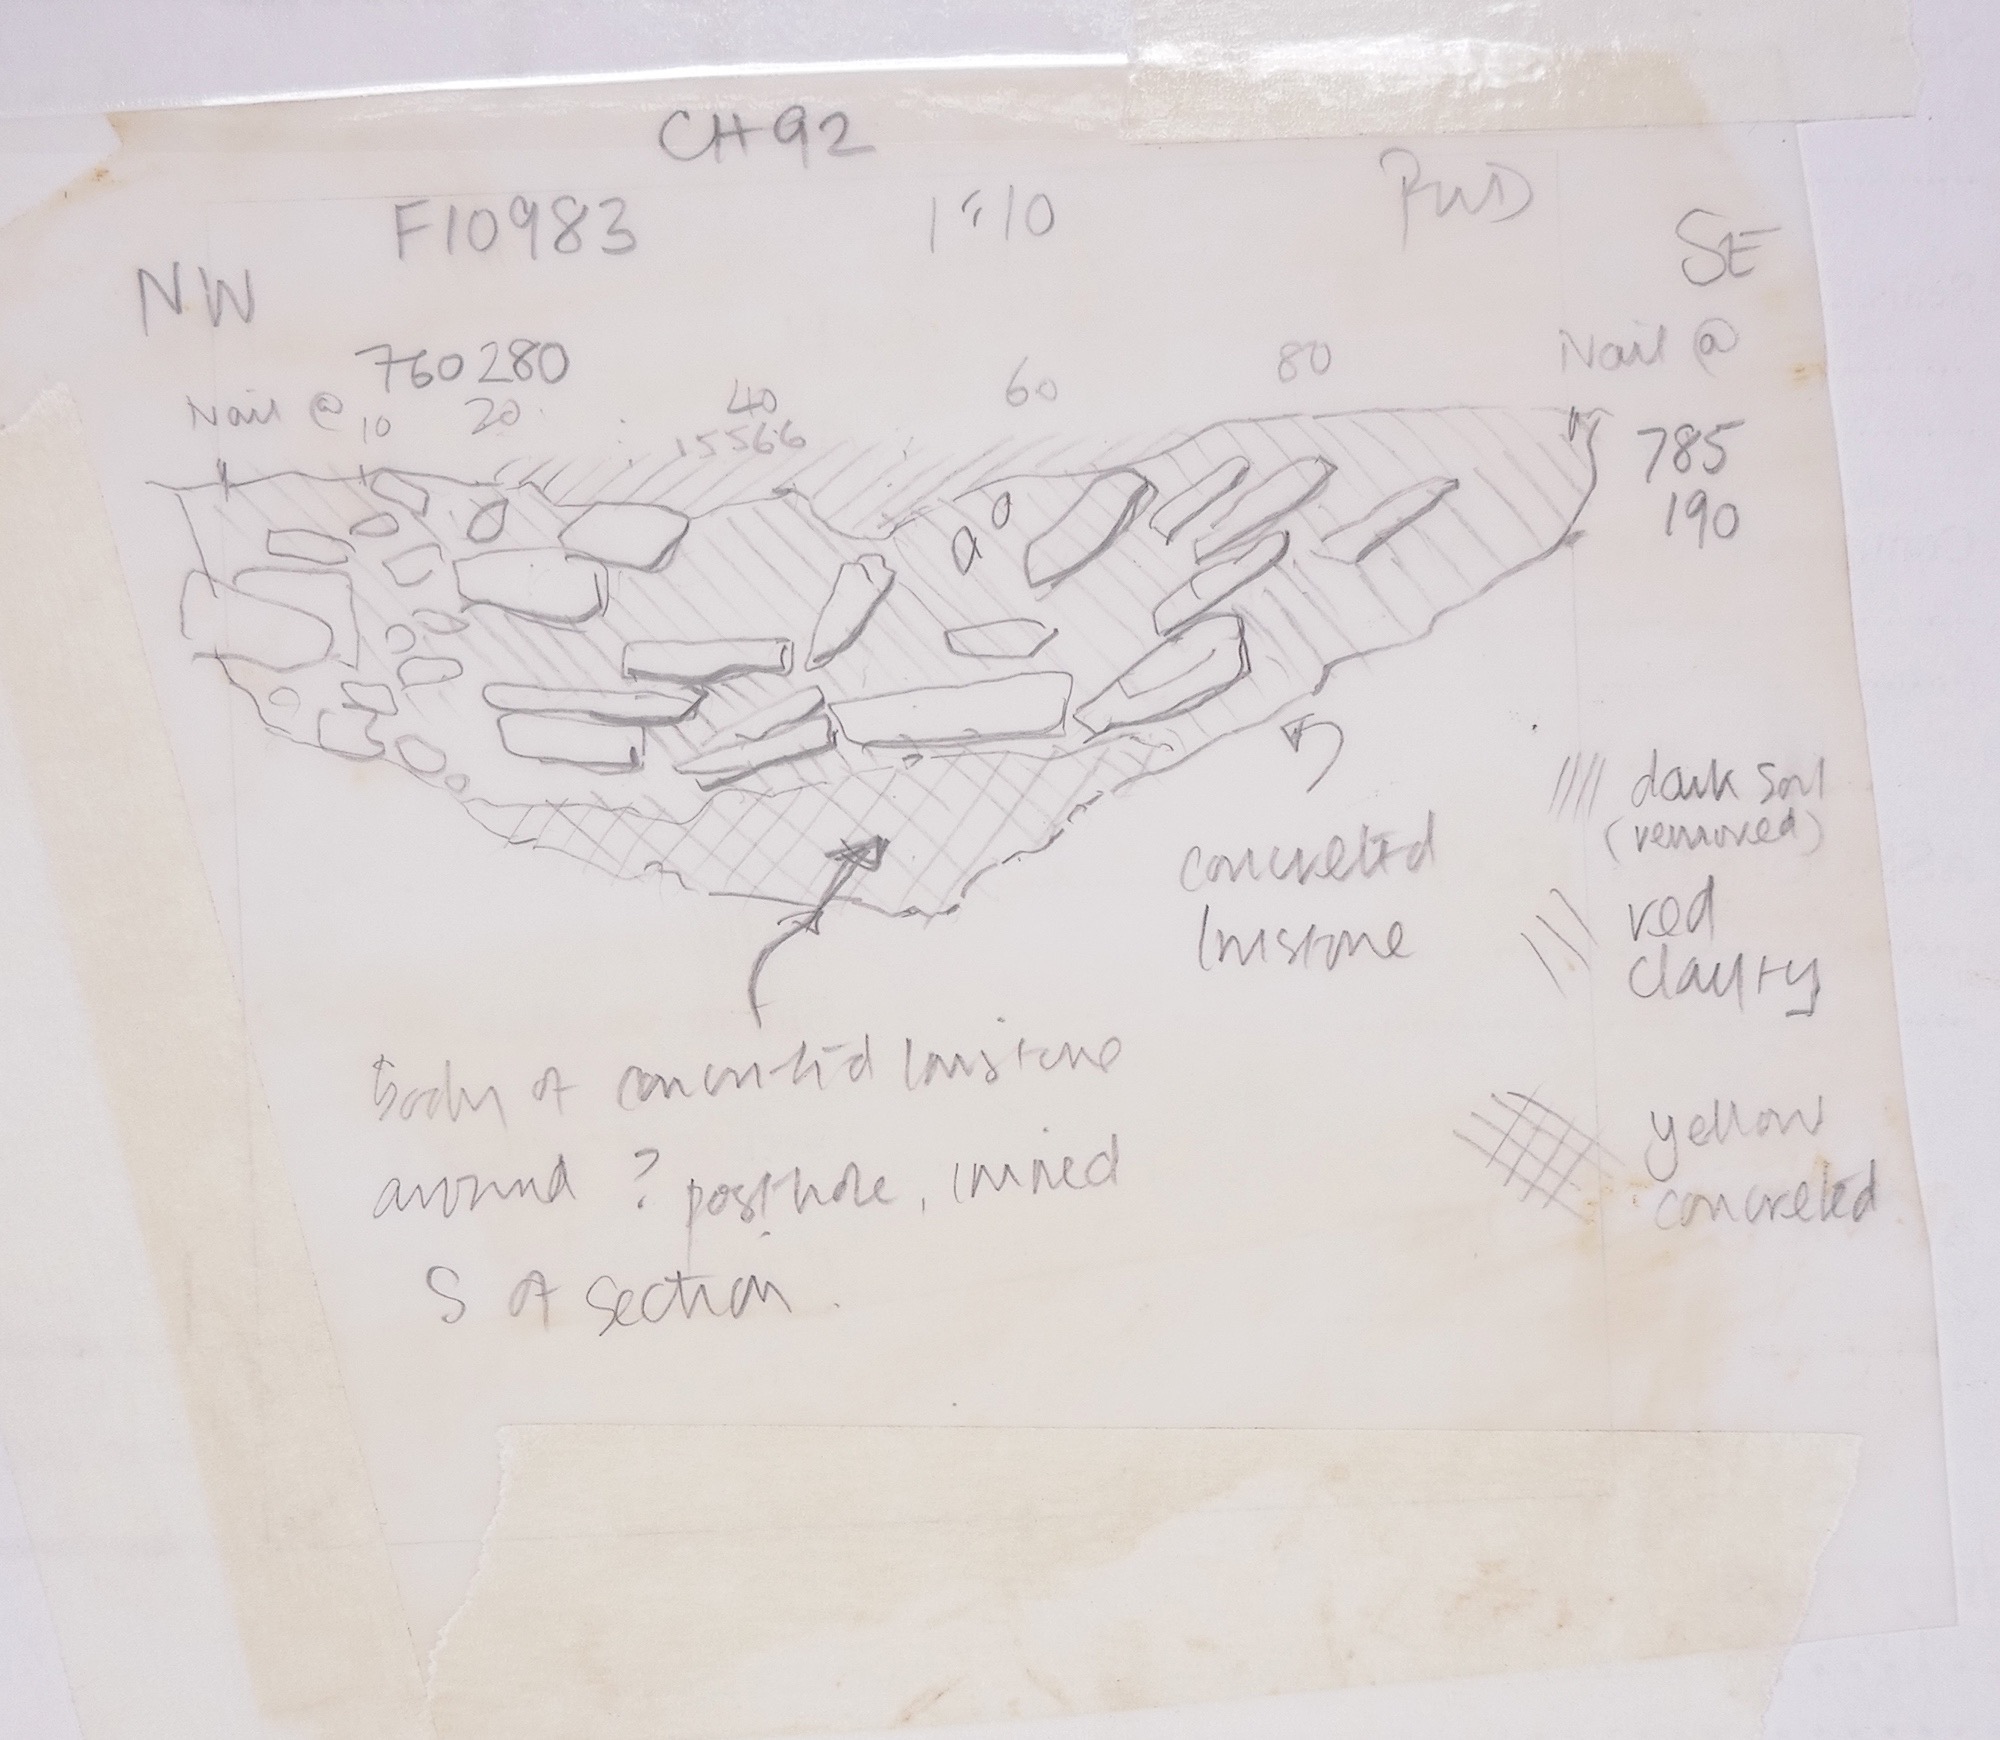 CH92
F10983 1:10 PWD
NW SE
760280
Nail @ 10 20 40 60 80 Nail @
15566
785
190
dark soil
(removed)
concreted
limestone
red
clayey
body of concreted limestone
around ? posthole,
S of section.
yellow
concreted